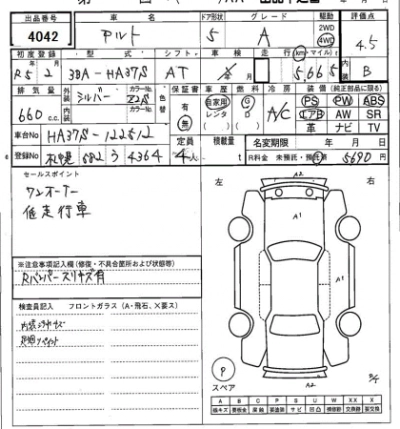 出品番号 車名 ドア形状 グレード 駆動 評価点
4042 アルト 5 A 2WD 4WD 4.5
初度登録 型式 シフト 車検 走行 km マイル 内装
R5 2 3BA-HA37S AT 年 月 5,665 B
排気量 外装 シルバー カラーNo. Z2S 色替 保証書 車歴 燃料 冷房 装備(純正部品に限る)
660 c.c. 内装 カラーNo. 有 無 自家用 レンタ G D A/C PS PW ABS
エアB AW SR
革 ナビ TV
車台No HA37S-122512 定員 積載量 名変期限 年 月 日
登録No 札幌 582 う 4364 4人 t R料金 未預託・預託済 5690 円
セールスポイント
ワンオーナー
低走行車
左 右
A2
A1
A1
※注意事項記入欄(修復・不具合箇所および状態等)
Rバンパースリキズ有
検査員記入 フロントガラス(A・飛石、X要ス)
内装
P
スペア
A2
A B C P S U W X XX
線キズ 要板金 腐食 要塗装 サビ 凹凸 補修跡 交換跡 要交換